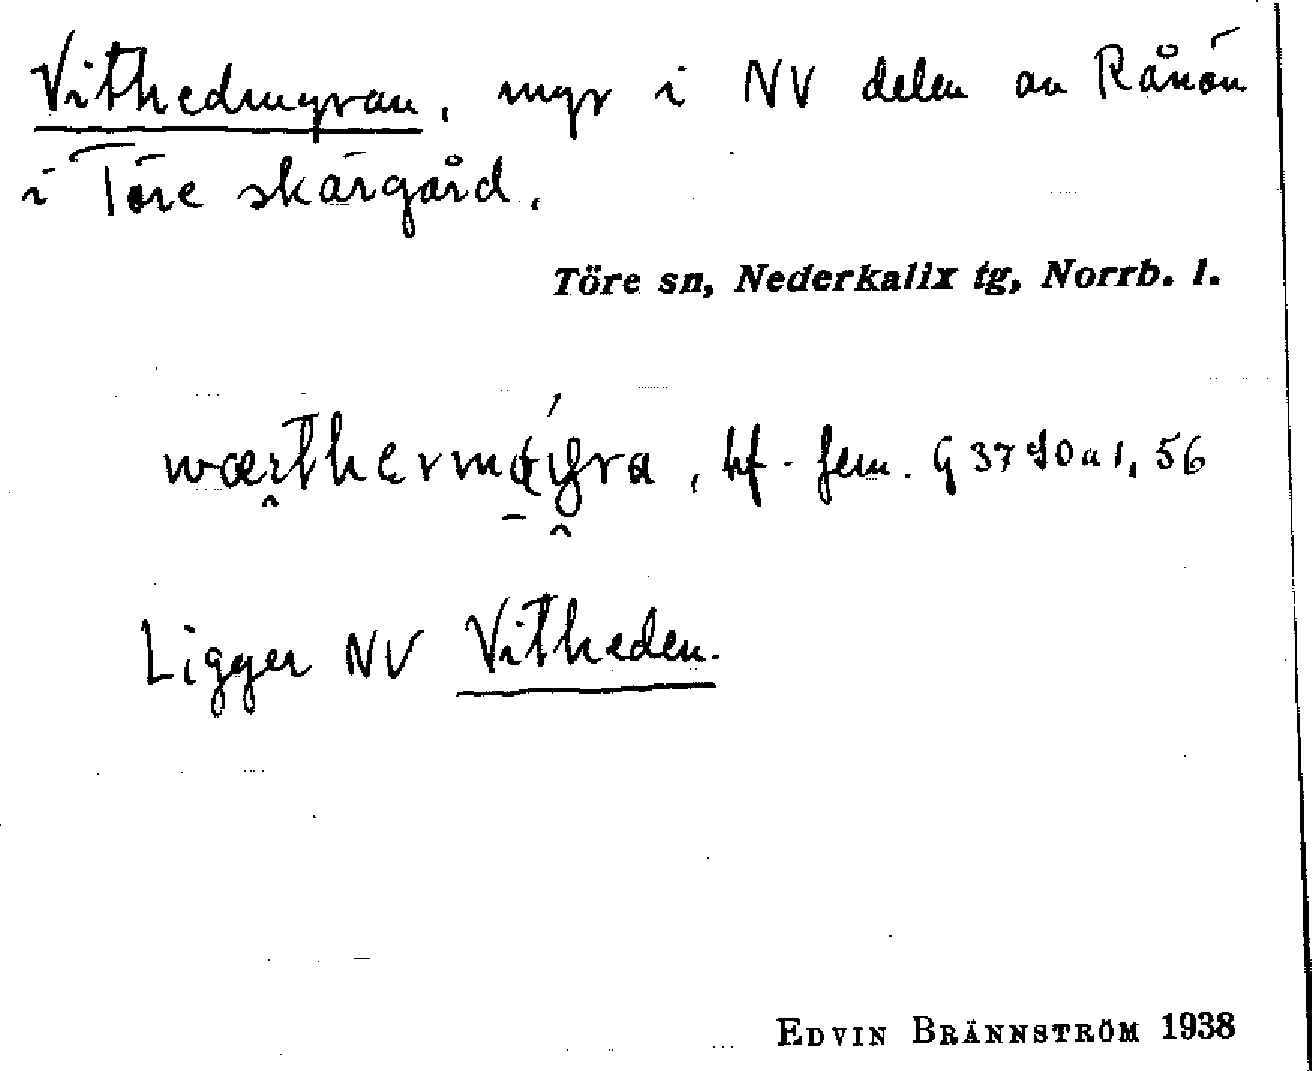 Vithedmyran, myr i NV delen av Rånön
i Töre skärgård.
Töre sn, Nederkalix tg, Norrb. l.
bf. fem.
Ligger NV Vitheden.
EDVIN BRÄNNSTRÖM 1938